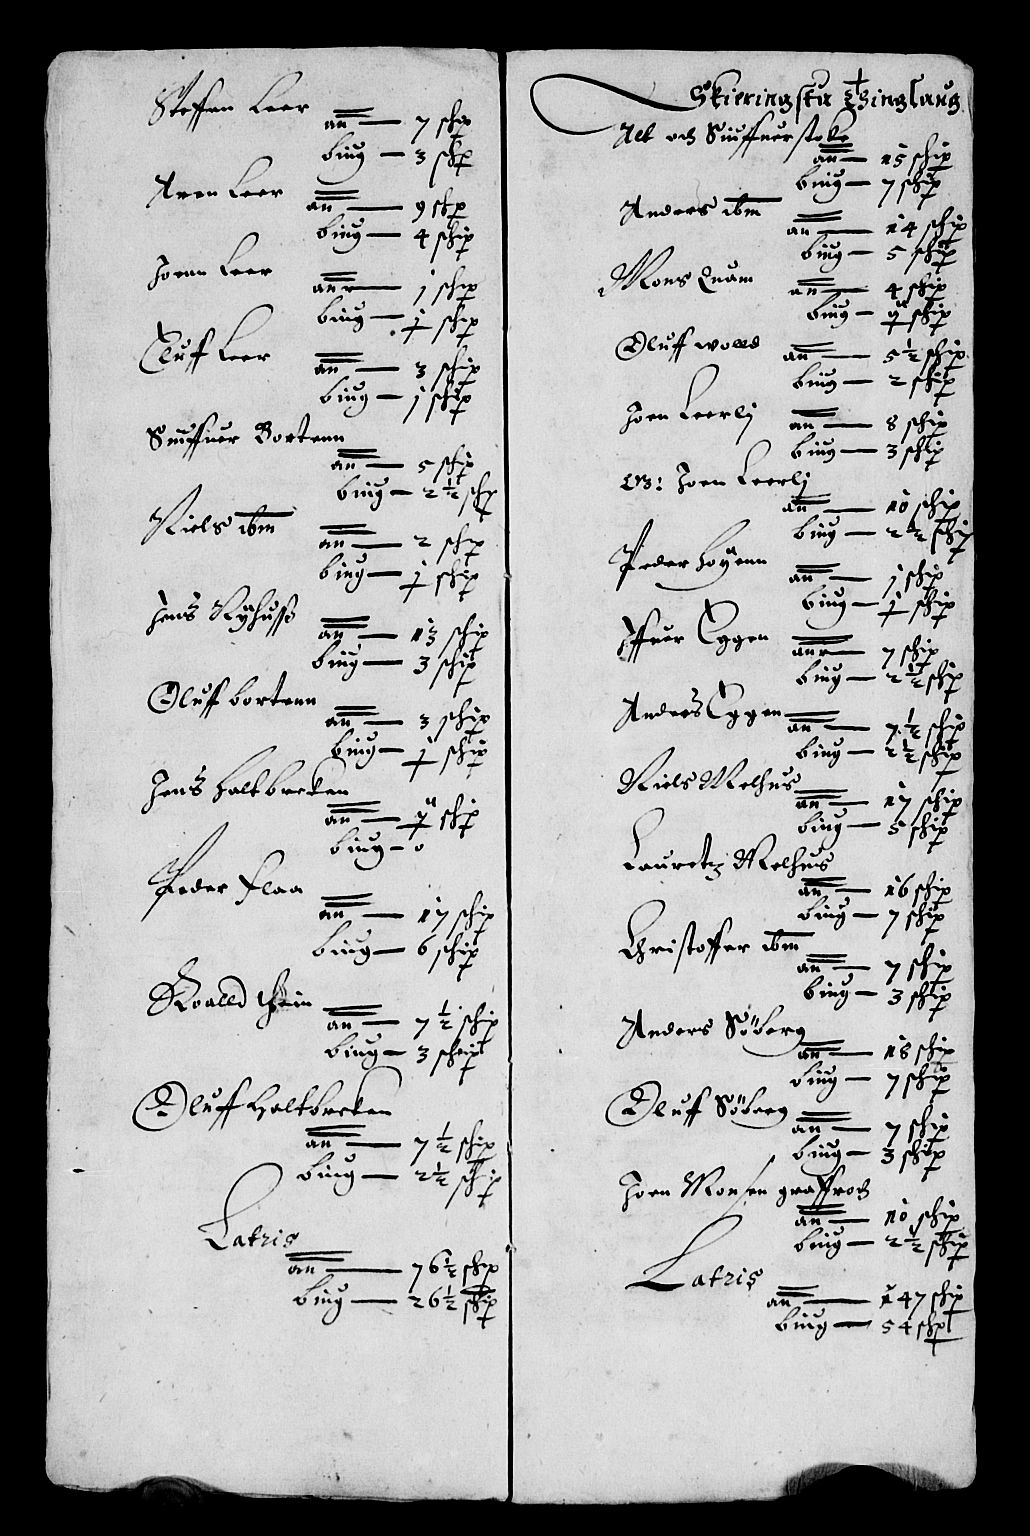 Steffen Leer
an — 7 schip
biug — 3 schp
Aren Leer
an — 9 schp
biug — 4 schip
Joenn Leer
anr — j schip
biug — ɉ schip
Oluff Leer
an — 3 schip
biug — j schip
Siuffuer Bortenn
an — 5 schip
biug — 2½ schp
Niels ibm
an — 2 schip
biug — ɉ schip
Jens Nyhuss
an — 13 schip
biug — 3 schip
Oluff bortenn
an — 3 schip
biug — ɉ schip
Jens Holtbrcken
an — schip
biug — 0
Peder Flaa
an — 17 schip
biug — 6 schip
Roalld thein
an — 7½ schip
biug — 3 schip
Oluff Holtbrcken
an — 7½ schip
biug — 2½ schip
Latris
an — 76½ schip
biug — 26½ schip
Skieringstu Thinglaug
och Siuffuer
an — 15 schip
biug — 7 schip
Anders ibm
an — 14 schip
biug — 5 schip
Mons Quam
an — 4 schip
biug — schip
Oluff wolld
an — 5½ schip
biug — 2 schip
Joen Leerlj
an — 8 schip
biug — 3 schip
Joen Leerlj
an — 10 schip
biug — 2½ schip
Peder hoyenn
an — j schip
biug — ɉ schip
Iffuer Eggen
anr — 7 schip
biug — 2½ schip
Anders Eggen
an — 7½ schip
biug — 2½ schip
Niels Melhus
an — 17 schip
biug — 5 schip
Lauretz Melhus
an — 16 schip
biug — 7 schip
Christoffer ibm
an — 7 schip
biug — 3 schip
Anders Söberg
an — 18 schip
biug — 7 schip
Oluff Söberg
an — 7 schip
biug — 3 schip
Joen Monsen graffroch
an — 10 schip
biug — 2½ schip
Latris
an — 147 schip
biug — 54 schp